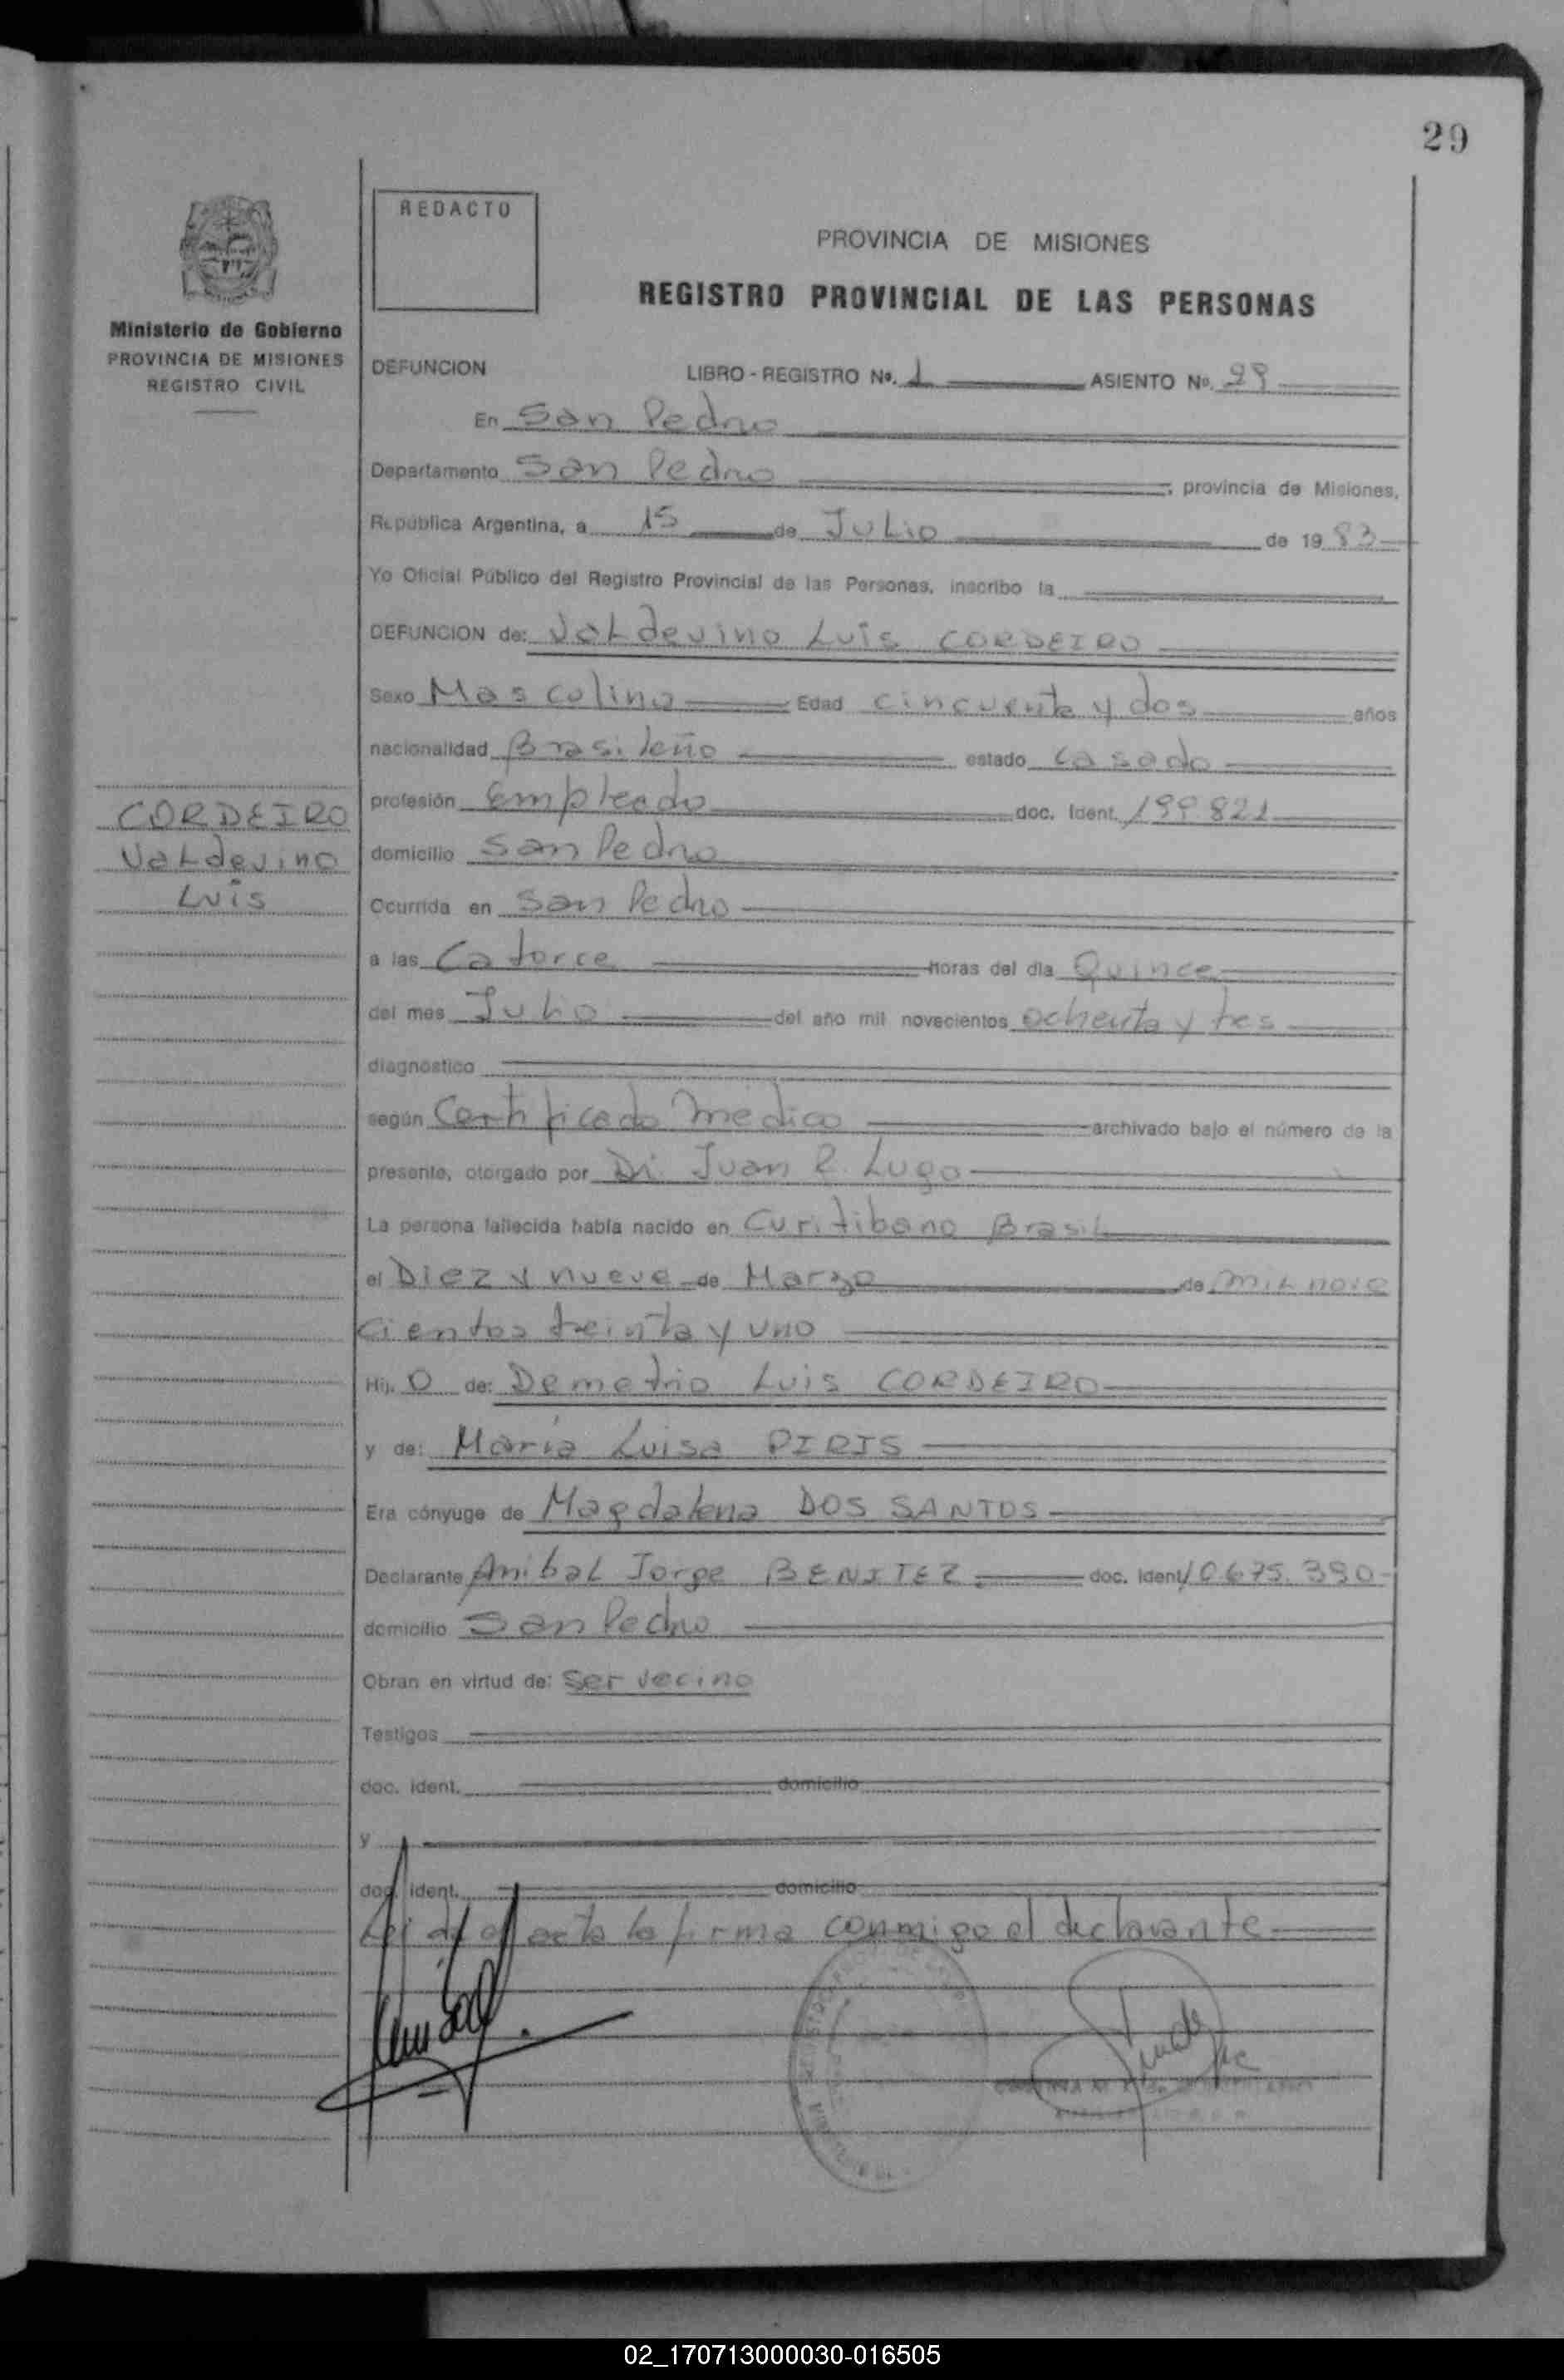 29
REDACTO
PROVINCIA DE MISIONES
REGISTRO PROVINCIAL DE LAS PERSONAS
Ministerio de Gobierno
PROVINCIA DE MISIONES
REGISTRO CIVIL
DEFUNCION LIBRO - REGISTRO Nº. 1 ASIENTO Nº. 29
En San Pedro
Departamento San Pedro, provincia de Misiones,
República Argentina, a 15 de Julio de 1983
Yo Oficial Público del Registro Provincial de las Personas, inscribo la
DEFUNCION de: Valdevino Luis CORDEIRO
Sexo Mascolino Edad cincuenta y dos años
nacionalidad Brasileño estado casado
CORDEIRO
Valdevino
Luis
profesión Empleado doc. Ident. 199821
domicilio San Pedro
Ocurrida en San Pedro
a las Catorce horas del día Quince
del mes Julio del año mil novecientos ochenta y tres
diagnóstico
según Certificado Medico archivado bajo el número de la
presente, otorgado por Dr. Juan R. Lugo
La persona fallecida había nacido en Curitibano Brasil
el Diez y nueve de Marzo de mil nove
cientos treinta y uno
Hij. O de: Demetrio Luis CORDEIRO
y de: María Luisa PIRIS
Era cónyuge de Magdalena DOS SANTOS
Declarante Anibal Jorge BENITEZ. doc. Ident. 10.675.390
domicilio San Pedro
Obran en virtud de: Ser vecino
Testigos
doc. ident. domicilio
y
doc. ident. domicilio
acta la firma conmigo el declarante
02_170713000030-016505